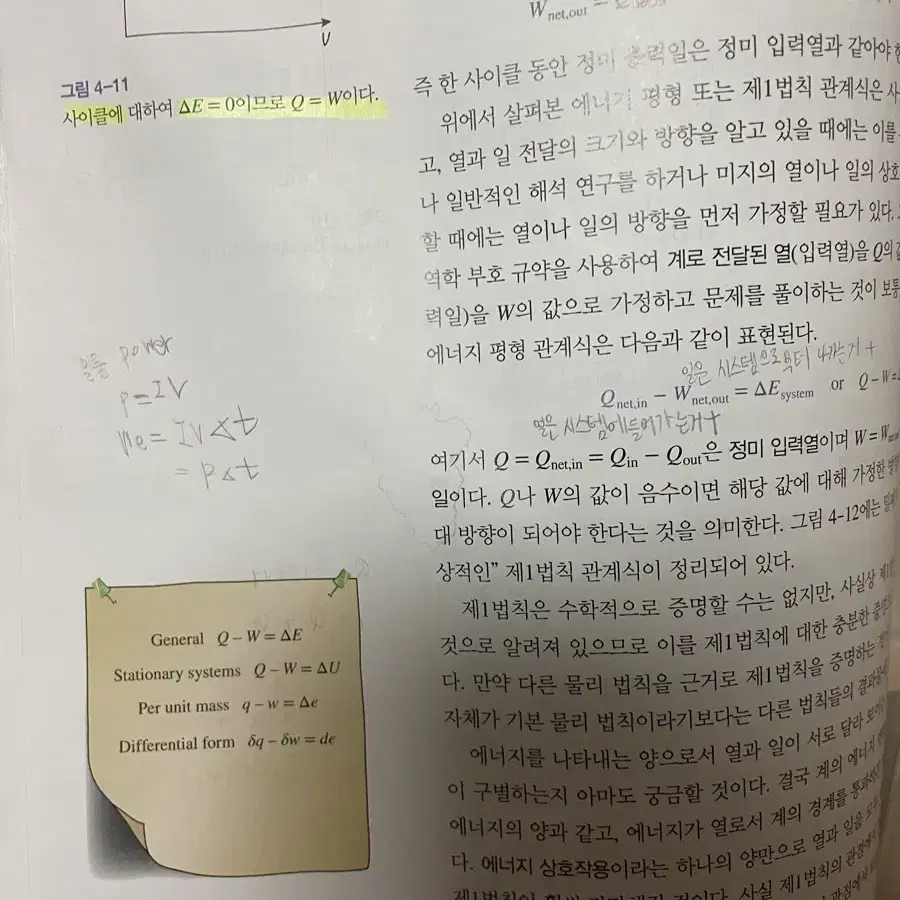 υ
그림 4–11
사이클에 대하여 ΔE = 0이므로 Q = W이다.
power
P = IV
We = IVΔt
= PΔt
General Q – W = ΔE
Stationary systems Q – W = ΔU
Per unit mass q – w = Δe
Differential form δq – δw = de
W net,out =
즉 한 사이클 동안 정미 출력일은 정미 입력열과 같아야
위에서 살펴본 에너지 평형 또는 제1법칙 관계식은
고, 열과 일 전달의 크기와 방향을 알고 있을 때에는 이를
나 일반적인 해석 연구를 하거나 미지의 열이나 일의
할 때에는 열이나 일의 방향을 먼저 가정할 필요가 있다.
역학 부호 규약을 사용하여 계로 전달된 열(입력열)을 Q의
력일)을 W의 값으로 가정하고 문제를 풀이하는 것이
에너지 평형 관계식은 다음과 같이 표현된다.
일은 시스템으로부터 나가는거 +
Q net,in – W net,out = ΔE system or Q – W =
열은 시스템에 들어가는거 +
여기서 Q = Q net,in = Q in – Q out은 정미 입력열이며 W =
일이다. Q나 W의 값이 음수이면 해당 값에 대해 가정한
대 방향이 되어야 한다는 것을 의미한다. 그림 4–12에는
상적인” 제1법칙 관계식이 정리되어 있다.
제1법칙은 수학적으로 증명할 수는 없지만, 사실상
것으로 알려져 있으므로 이를 제1법칙에 대한 충분한
다. 만약 다른 물리 법칙을 근거로 제1법칙을 증명하는
자체가 기본 물리 법칙이라기보다는 다른 법칙들의
에너지를 나타내는 양으로서 열과 일이 서로 달라
이 구별하는지 아마도 궁금할 것이다. 결국 계의 에너지
에너지의 양과 같고, 에너지가 열로서 계의 경계를
다. 에너지 상호작용이라는 하나의 양만으로 열과 일을
사실 제1법칙의 관점에서